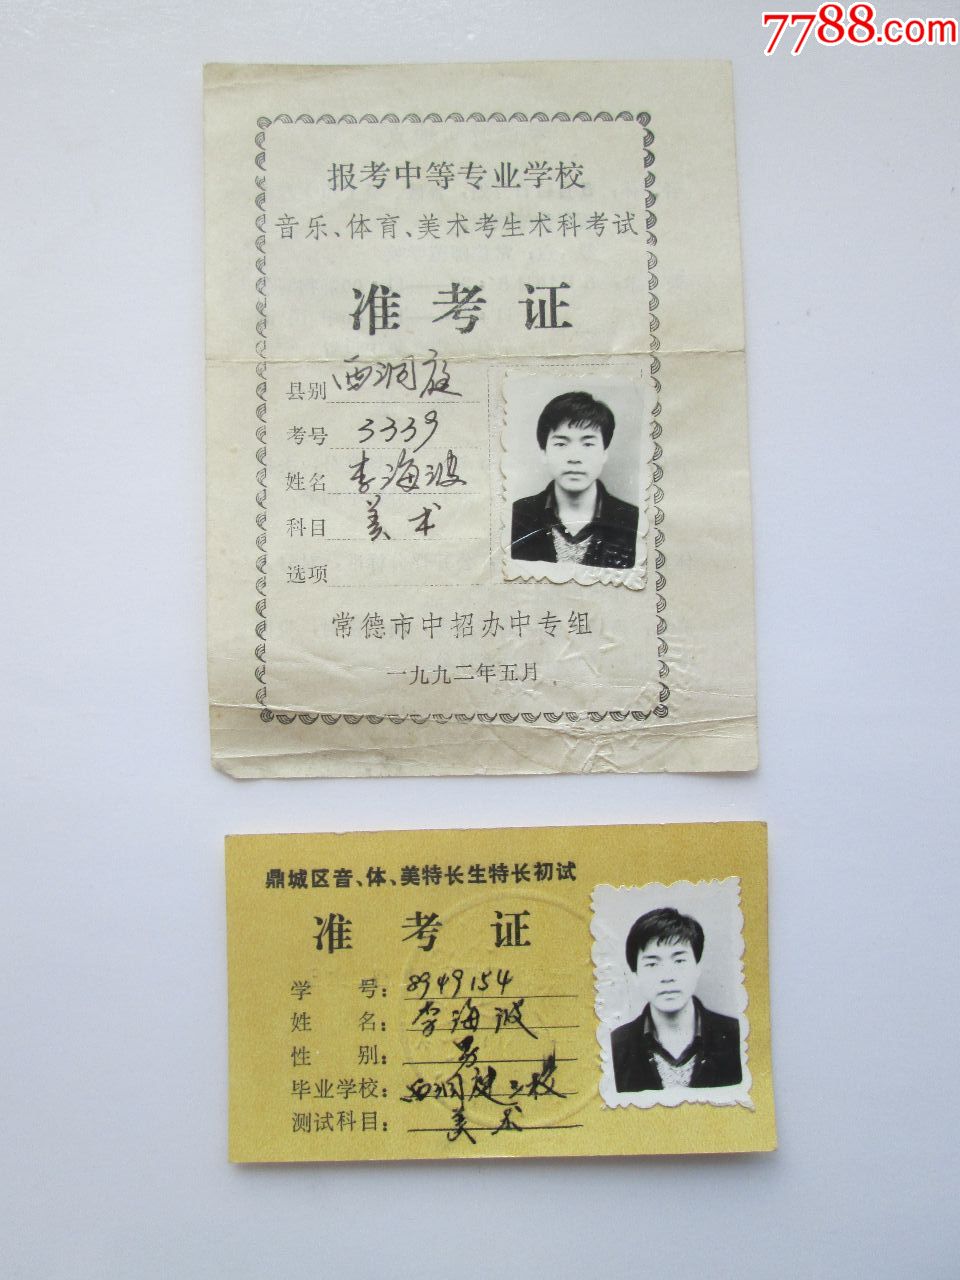 7788.com
报考中等专业学校
音乐、体育、美术考生术科考试
准考证
县别 西洞庭
考号 3339
姓名 李海波
科目 美术
选项
常德市中招办中专组
一九九二年五月
鼎城区音、体、美特长生特长初试
准考证
学号：8949154
姓名：李海波
性别：男
毕业学校：西洞庭三校
测试科目：美术